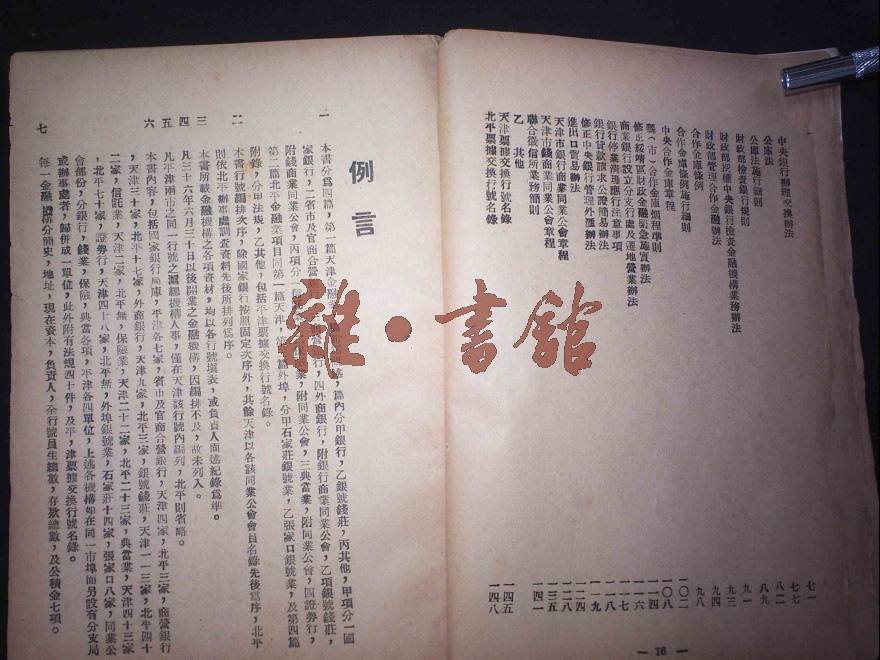 中央銀行辦理交換辦法 七一
公庫法 七七
公庫法施行細則 八二
財政部檢查銀行規則 八九
財政部授權中央銀行檢查金融機構業務辦法 九一
財政部管理合作金庫辦法 九三
合作金庫條例 九四
合作金庫條例施行細則 九八
中央合作金庫章程 一〇二
縣(市)合作金庫章程準則 一〇八
修正綏靖區財政金融緊急施實辦法 一一四
商業銀行設立分支行處及遷地營業辦法 一一六
銀行停業清理應行注意事項 一一七
銀行貸款請求公證簡易辦法 一一八
修正中央銀行管理外匯辦法 一一九
進出口貿易辦法 一二四
天津市銀行商業同業公會章程 一二八
天津市錢商業同業公會章程 一三五
聯合徵信所業務簡則 一四一
乙 其他
天津票據交換行號名錄 一四五
北平票據交換行號名錄 一四八
— 16 —
例言
一 本書分爲四篇,第一篇天津金融業,篇內分甲銀行,乙銀號錢莊,丙其他,甲項分一國
家銀行,二省市及官商合營銀行,四外商銀行,附銀行商業同業公會,乙項銀號錢莊,
附錢商業同業公會,丙項分一業,附同業公會,三典當業,附同業公會,四證券行,
第二篇北平金融業項目同第一篇天津,第三篇外埠,分甲石家莊銀號業,乙張家口銀號業,及第四篇
附錄,分甲法規,乙其他,包括平津票據交換行號名錄。
二 本書行號編排次序,除國家銀行按照固定次序外,其餘天津以各該同業公會會員名錄先後爲序,北平
則依北平辦事處調查資料先後所排列爲序。
三 本書所載金融機構之各項資材,均以各行號填表,或負責人面述紀錄爲準。
四 凡三十六年六月三十日以後開業之金融機構,因編排不及,故未列入。
五 凡平津兩市之同一行號之滬總機構人事,僅在天津該行號內編列,北平則省略。
六 本書內容,包括國家銀行局庫,平津各七家,省市及官商合營銀行,天津四家,北平三家,商營銀行
,天津三十家,北平十七家,外商銀行,天津九家,北平三家,銀號錢莊,天津一一三家,北平四十
二家,信託業,天津二家,北平無,保險業,天津二十二家,北平二十三家,典當業,天津四十三家
,北平七十家,證券行,天津四十八家,北平無,外埠銀號業,石家莊十四家,張家口八家,同業公
會部份,分銀行,錢業,保險,典當各項,平津各四單位,上述各機構如在同一市埠而另設有分支局
或辦事處者,歸併成一單位,此外附有法規四十件,及平,津票據交換行號名錄。
七 每一金融機構分簡史,地址,現在資本,負責人,全行號員生總數,存欵總數,及公積金七項。
雜·書館